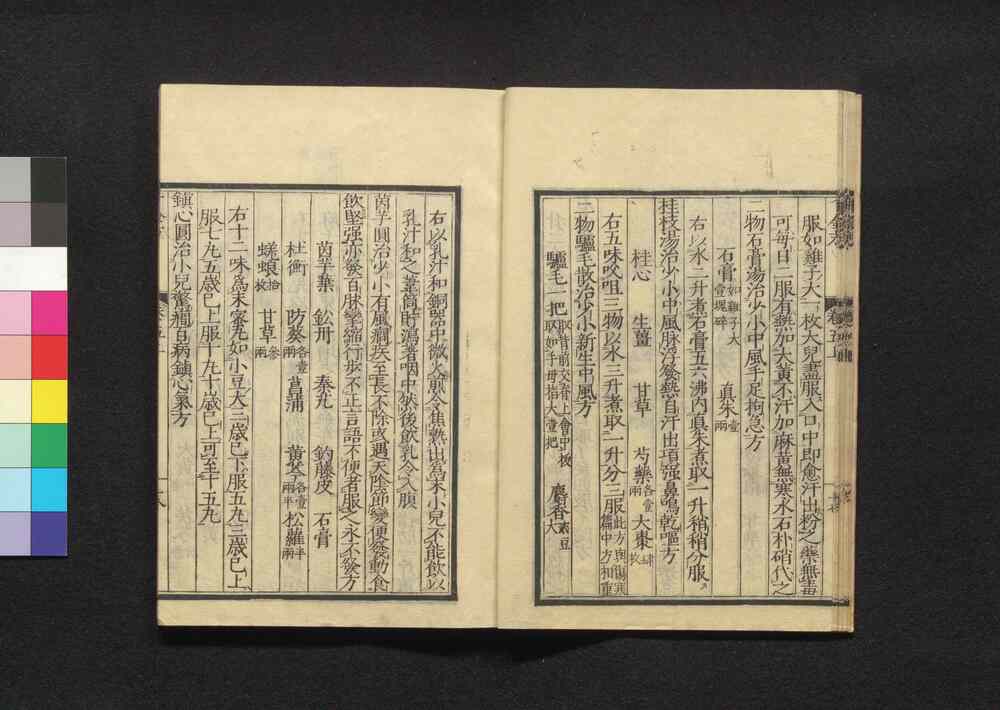 服如雞子大一枚大兒盡服入口中即愈汗出粉之藥無毒
可每日二服有熱加大黃不汗加麻黃無寒水石朴硝代之
二物石膏湯治少小中風手足拘急方
石膏如雞子大壹塊碎 真朱壹兩
右以水二升煮石膏五六沸內真朱煮取一升稍稍分服
桂枝湯治少小中風脉浮發熱自汗出項强鼻鳴乾嘔方
桂心 生薑 甘草 芍藥各壹兩 大棗肆枚
右五味㕮咀三物以水三升煮取一升分三服此方與傷寒篇中方相重
二物驢毛散治少小新生中風方
驢毛一把取背前交脊上會中拔取如手拇指大壹把 麝香貳豆大
右以乳汁和銅器中微火煎令焦熟出爲末小兒不能飲以
乳汁和之葦筒貯瀉著咽中然後飲乳令入腹
茵芋圓治少小有風癇疾至長不除或遇天陰節變便發動食
飲堅强亦發百脉攣縮行步不正言語不便者服之永不發方
茵芋葉 鈆丹 秦艽 釣藤皮 石膏
杜衡 防葵各壹兩 菖蒲 黃芩各壹兩半 松蘿半兩
蜣蜋拾枚 甘草參兩
右十二味爲末蜜丸如小豆大三歲已下服五丸三歲已上
服七丸五歲已上服十丸十歲已上可至十五丸
鎮心圓治小兒驚癇百病鎮心氣方